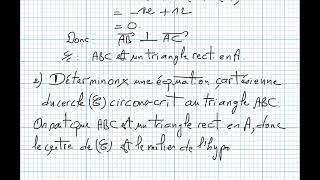 = -12 + 12
= 0
Donc AB ⊥ AC
& : ABC est un triangle rect en A.
2) Déterminons une équation cartésienne
du cercle (C) circonscrit au triangle ABC.
On sait que ABC est un triangle rect en A, donc
le centre de (C) est le milieu de l'hypo